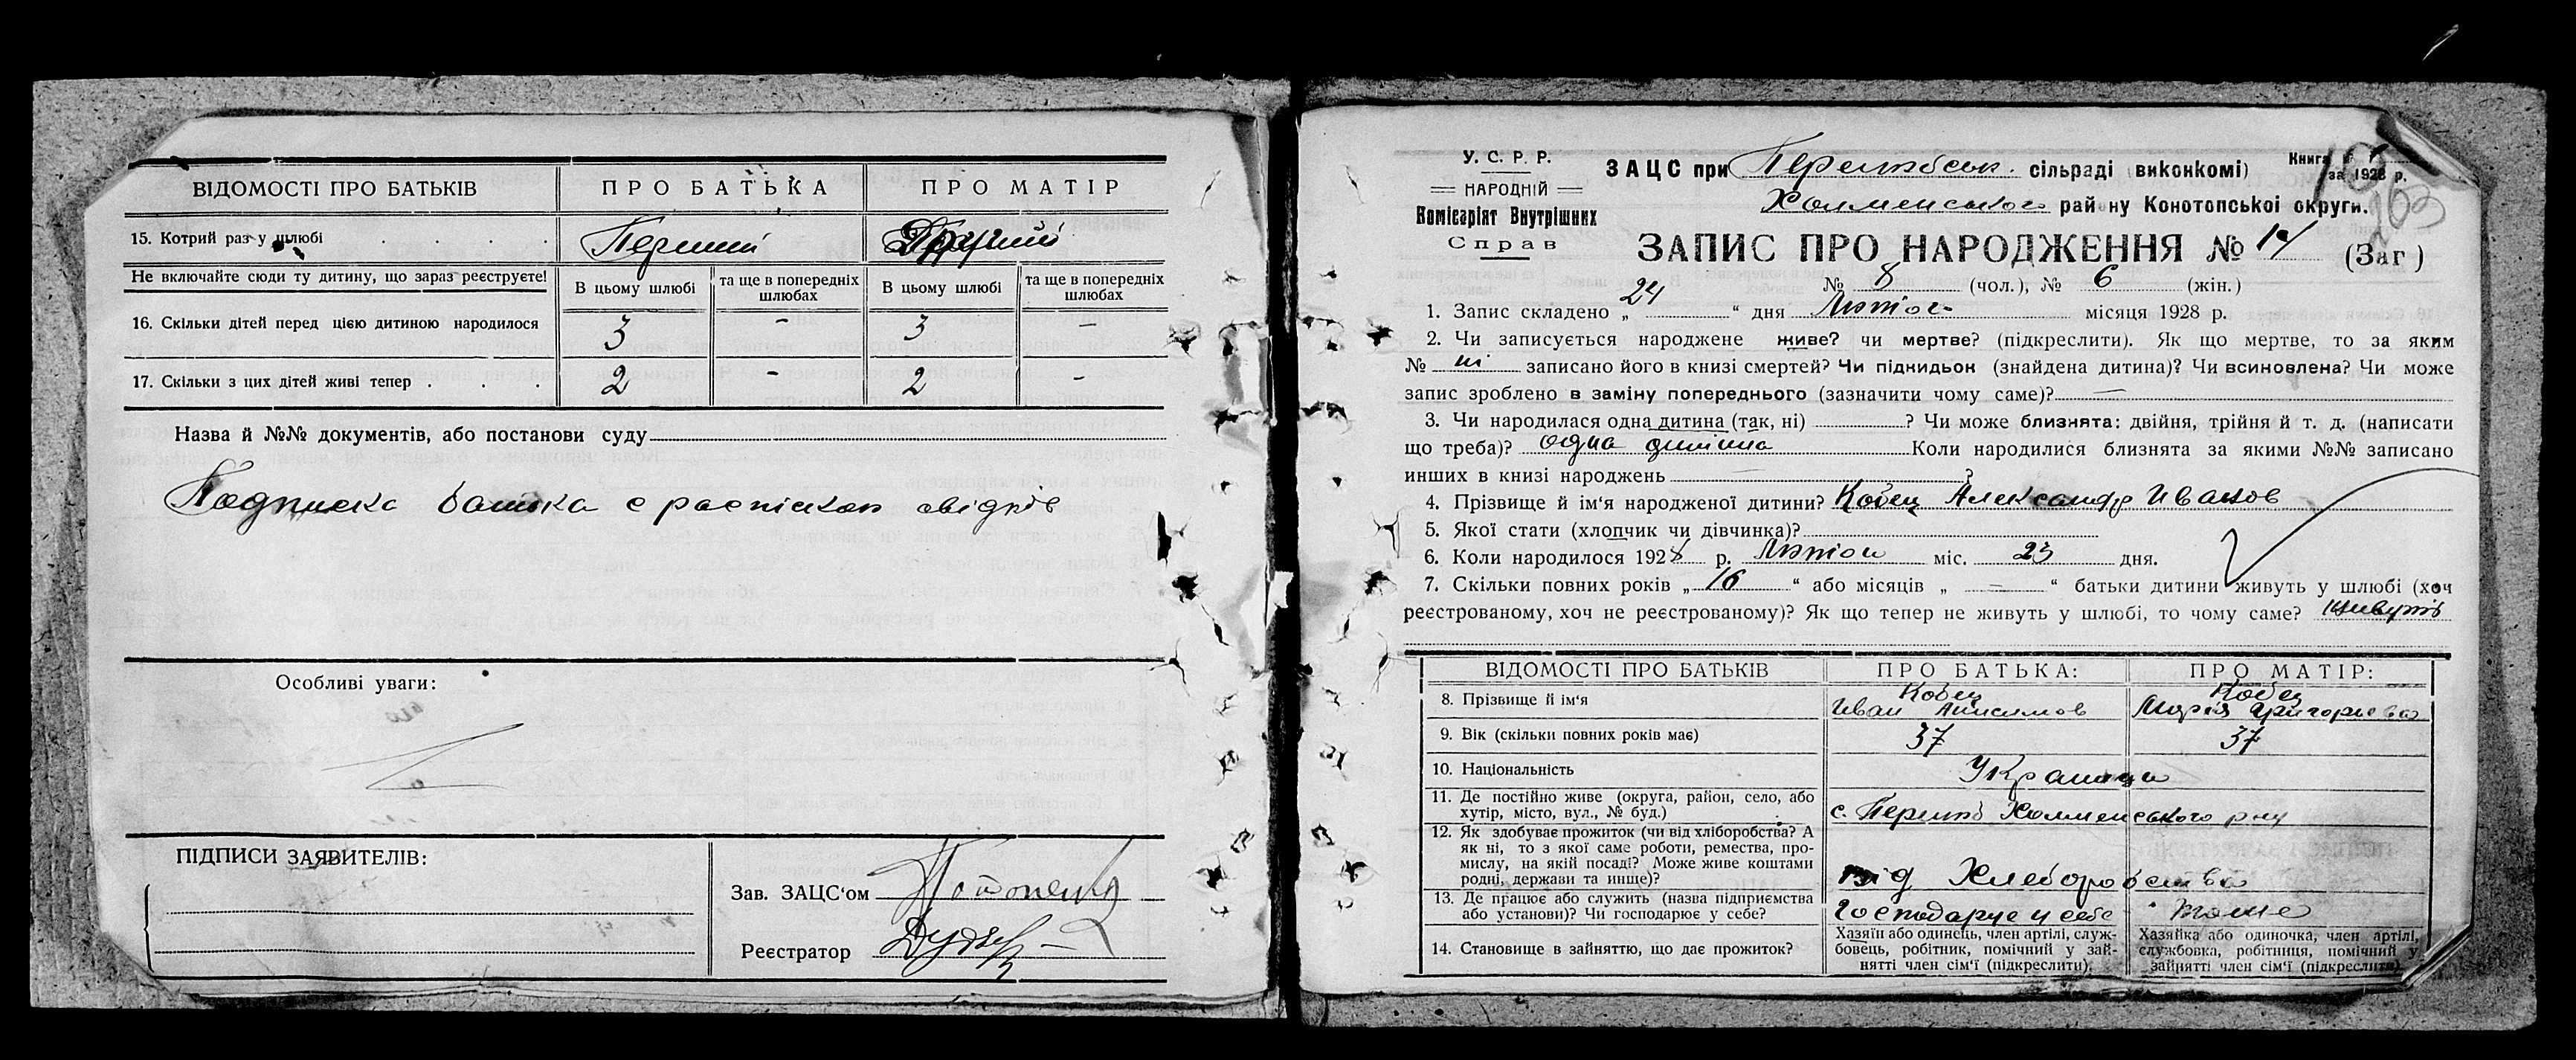 ВІДОМОСТІ ПРО БАТЬКІВ
ПРО БАТЬКА
ПРО МАТІР
15. Котрий раз у шлюбі . . . .
Перший
Другий
Не включайте сюди ту дитину, що зараз реєструєте!
В цьому шлюбі
та ще в попередніх шлюбах
В цьому шлюбі
та ще в попередніх шлюбах
16. Скільки дітей перед цією дитиною народилося
3 - 3 —
17. Скільки з цих дітей живі тепер . . .
2 - 2 -
Назва й №№ документів, або постанови суду
Подписка батька свідків
Особливі уваги:
ПІДПИСИ ЗАЯВИТЕЛІВ:
Зав. ЗАЦС'ом
Реєстратор
У. С. Р. Р.
НАРОДНІЙ
Комісаріят Внутрішних
Справ
ЗАЦС при сільраді виконкомі)
Книга №
за 1928 р.
Холменського району Конотопської округи.
263
ЗАПИС ПРО НАРОДЖЕННЯ № 14 (Заг)
№ 8 (чол.), № 6 (жін.)
1. Запис складено „ 24 “ дня Лютого місяця 1928 р.
2. Чи записується народжене живе? чи мертве? (підкреслити). Як що мертве, то за яким
№ ні записано його в книзі смертей? Чи підкидьок (знайдена дитина)? Чи всиновлена? Чи може
запис зроблено в заміну попереднього (зазначити чому саме)? —
3. Чи народилася одна дитина (так, ні) ? Чи може близнята: двійня, трійня й т. д. (написати
що треба)? одна дитина Коли народилися близнята за якими №№ записано
инших в книзі народжень — ?
4. Прізвище й ім'я народженої дитини? Кобец Александр Иванов
5. Якої стати (хлопчик чи дівчинка)?
6. Коли народилося 1928 р. Лютого міс. 23 дня.
7. Скільки повних років „ 16 “ або місяців „ = “ батьки дитини живуть у шлюбі (хоч
реєстрованому, хоч не реєстрованому)? Як що тепер не живуть у шлюбі, то чому саме? живуть
ВІДОМОСТІ ПРО БАТЬКІВ
ПРО БАТЬКА:
ПРО МАТІР:
8. Прізвище й ім'я
Кобец
Иван Анисимов
Кобец
Марія Григорьева
9. Вік (скільки повних років має)
37
37
10. Національність
Украинци
11. Де постійно живе (округа, район, село, або
хутір, місто, вул., № буд.)
с. Холменського р-ну
12. Як здобуває прожиток (чи від хліборобства? А
як ні, то з якої саме роботи, ремества, про-
мислу, на якій посаді? Може живе коштами
родні, держави та инще)?
від Хлеборобства
13. Де працює або служить (назва підприємства
або установи)? Чи господарює у себе?
Господарує у себе
тоже
14. Становище в зайняттю, що дає прожиток?
Хазяїн або одинець, член артілі, служ-
бовець, робітник, помічний у зай-
нятті член сім'ї (підкреслити).
Хазяйка або одиночка, член артілі,
службовка, робітниця, помічний у
зайнятті член сім'ї (підкреслити).